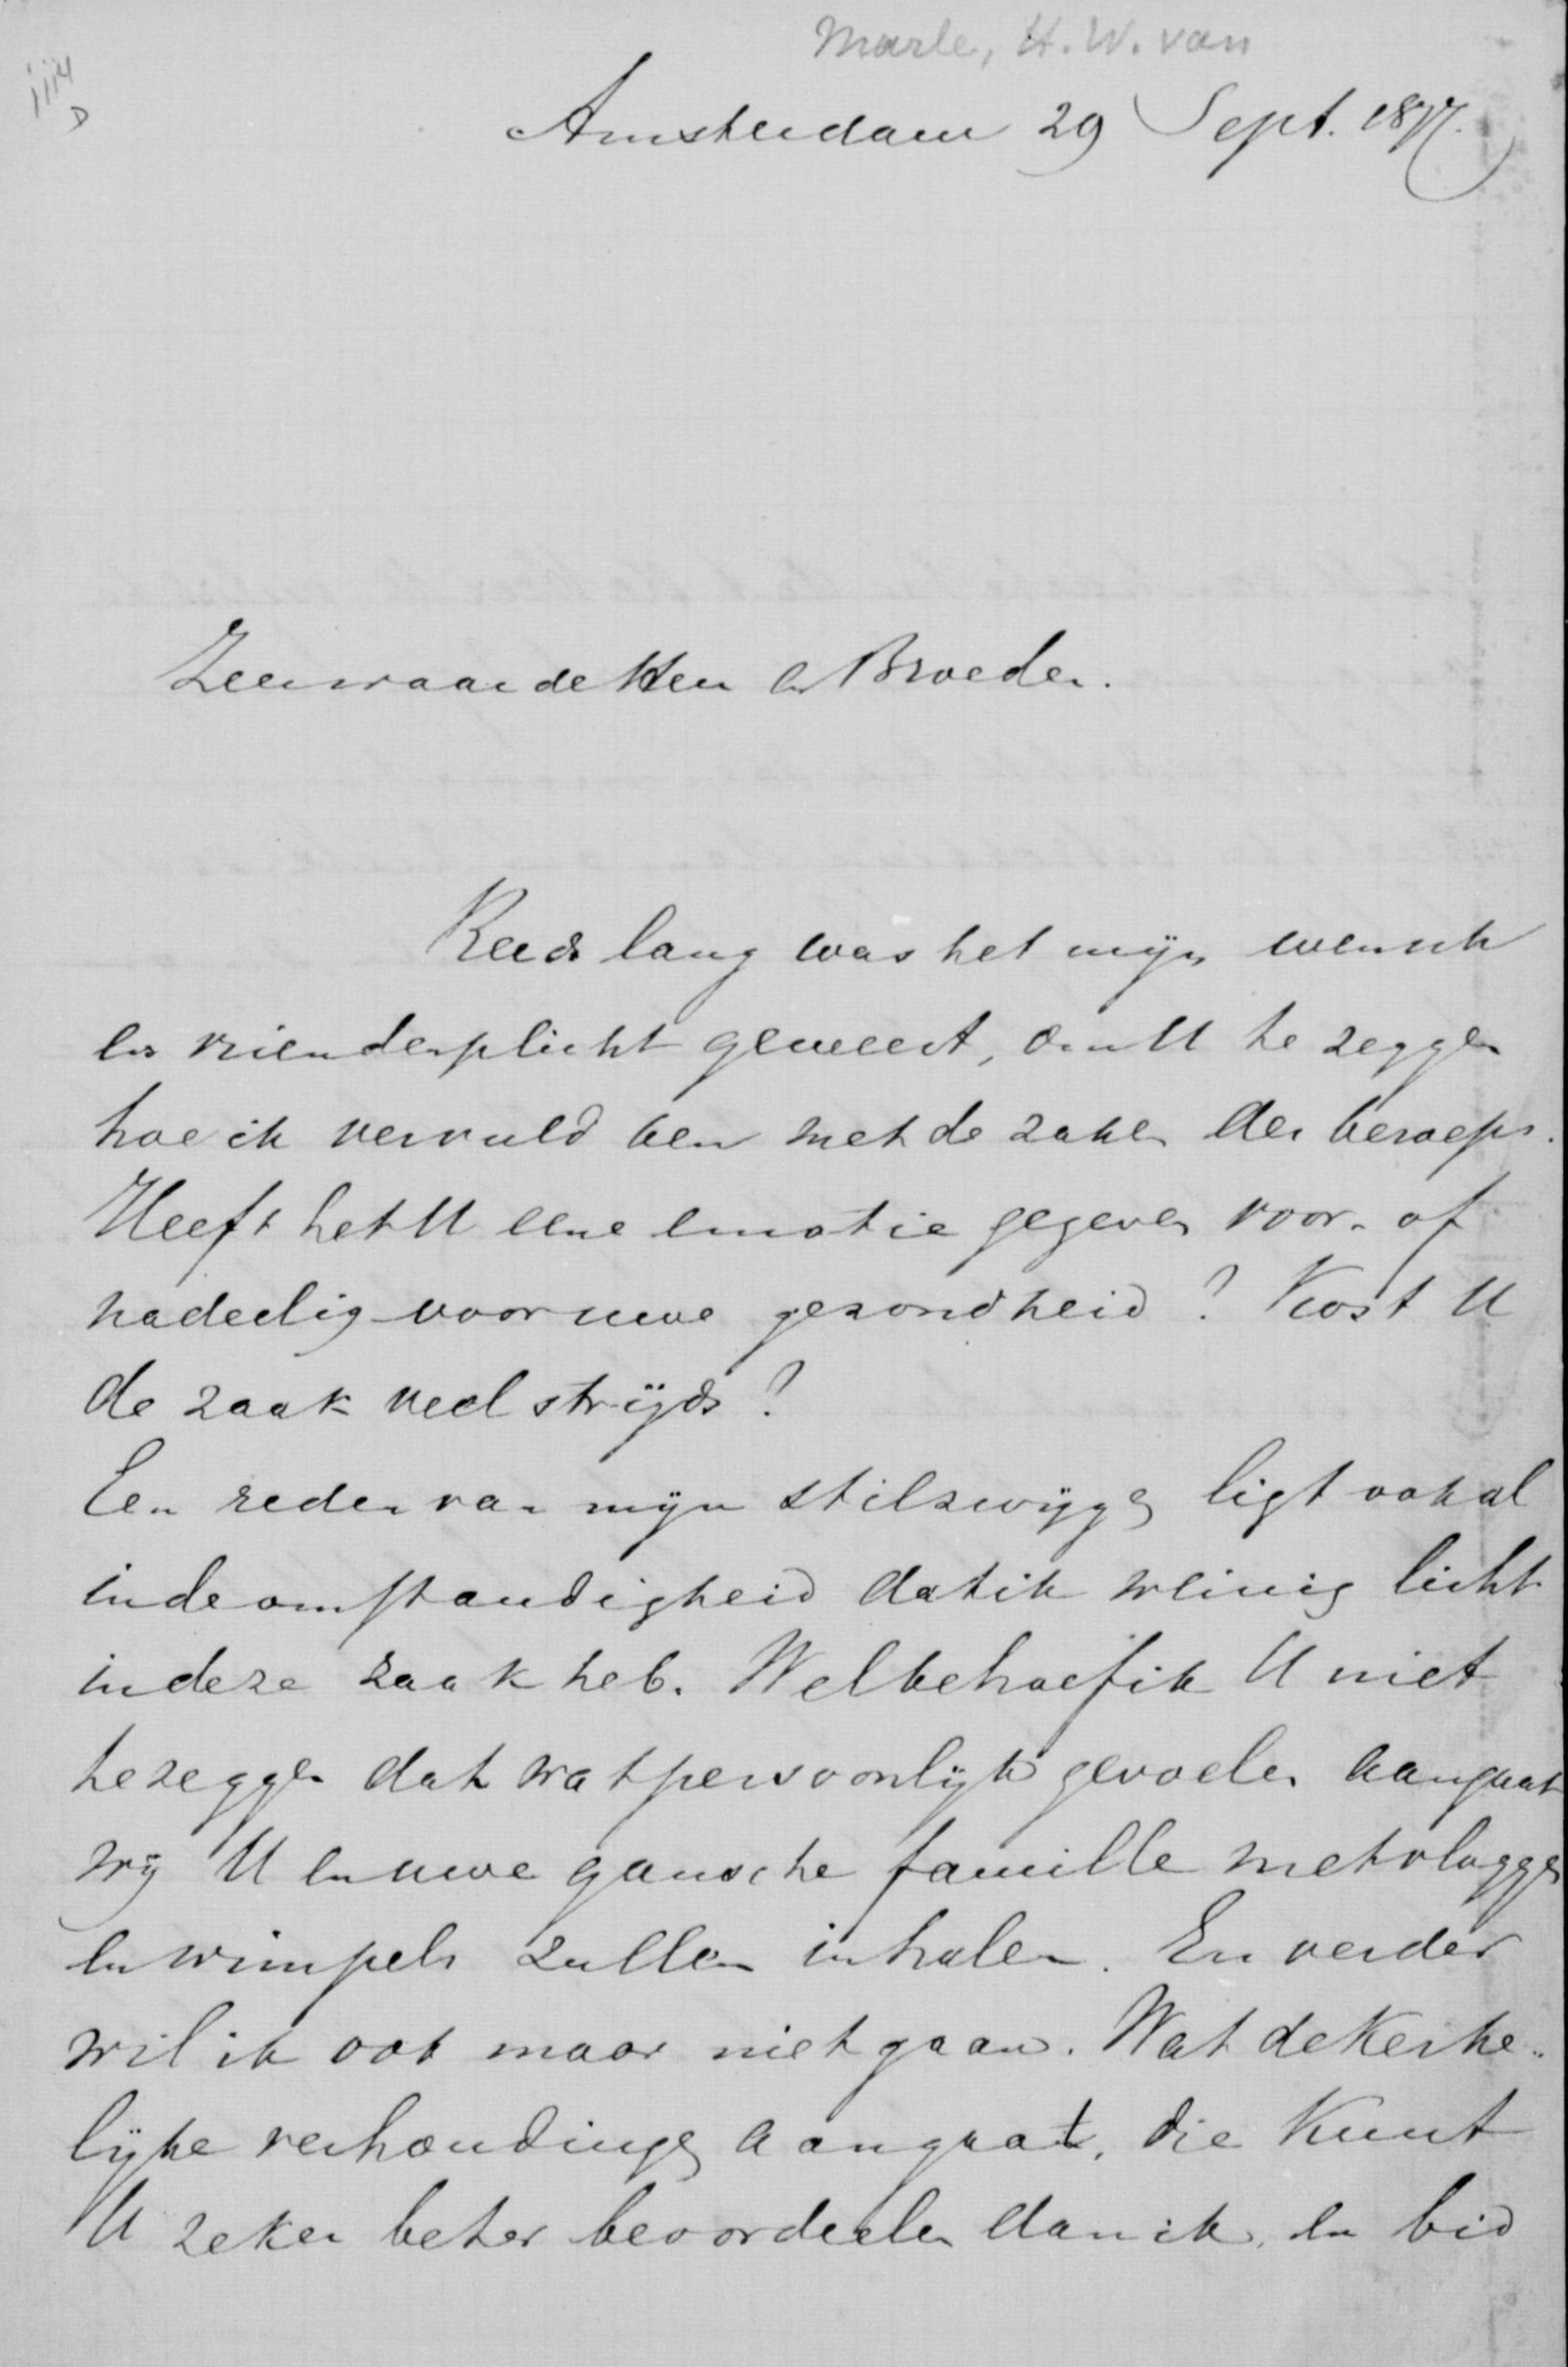 Marle, H. W. van
Amsterdam 29 Sept. 1877.
Zeerwaarde Heer en Broeder.
Reeds lang was het mijn wensch
en vriendenplicht geweest, om U te zeggen
hoe ik vervuld ben met de zaken des beroeps.
Heeft het U eene emotie gegeven voor- of
nadeelig voor uwe gezondheid? Kost U
de zaak veel strijds?
Een reden van mijn stilzwijgen ligt ook al
in de omstandigheid dat ik weinig licht
in deze zaak heb. Wel behoef ik U niet
te zeggen dat wat persoonlijk gevoelen aangaat
wij U en uwe gansche famille met vlaggen
en wimpels zullen inhalen. En verder
wil ik ook maar niet gaan. Wat de Kerke-
lijke verhoudingen aangaat, die kunt
U zeker beter beoordeelen dan ik, en bid